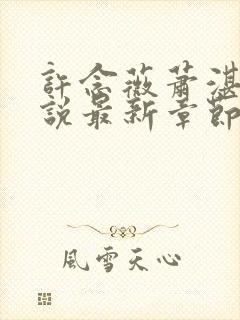 許念薇蕭湛
說最新章節
風雪天心